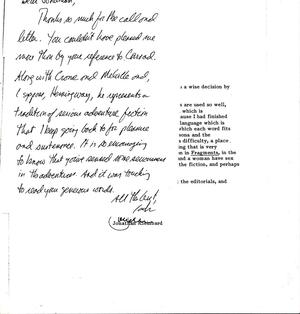 Dear Jonathan,
Thanks so much for the call and
letter. You couldn't have pleased me
more than by your reference to Conrad.
Along with Crane and Melville and,
I suppose, Hemingway, he represents a
tradition of serious adventure fiction
that I keep going back to for pleasure
and sustenance. It is so encouraging
to know that you've sensed some
in the adventures. And it was touching
to read your generous words.
All the best,
Jonathan
s a wise decision by
s are used so well,
which is
ause I had finished
language which is
which each word fits
sona and the
s difficulty, a place
ng that is very
m in Fragments, in the
nd a woman have sex
the fiction, and perhaps
the editorials, and